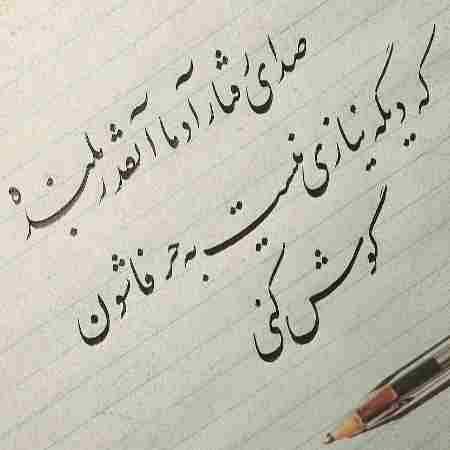 صدای رفتار آدما آنقدر بلنده
که دیگه نیازی نیست به حرفاشون
گوش کنی